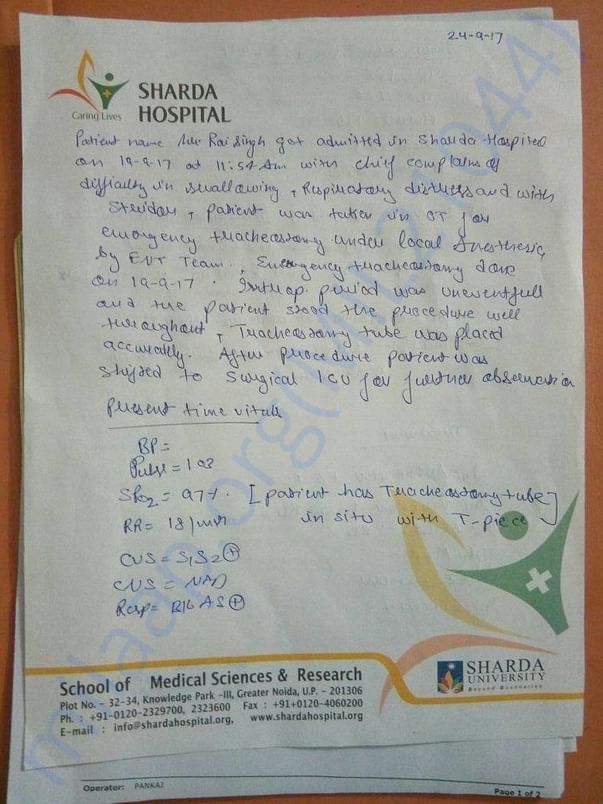 24-9-17
SHARDA
HOSPITAL
Caring Lives
Patient name Mr Rai Singh got admitted in Sharda Hospital
on 19-9-17 at 11:54 Am with chief complains of
difficulty in swallowing, Respiratory distress and with
Stridor, patient was taken in OT for
emergency tracheostomy under local Anesthesia
by ENT Team. Emergency tracheostomy done
on 19-9-17. Intraop. period was uneventfull
and the patient stood the procedure well
throughout, Tracheostomy tube was placed
accurately. After procedure patient was
shifted to Surgical ICU for further observation
Present time vitals
BP =
Pulse = 103
SPO2 = 97%. [patient has Tracheostomy tube]
RR = 18/min in situ with T-piece
CVS = S1S2 ⊕
CNS = NAD
Resp = B/L AS ⊕
School of Medical Sciences & Research
Plot No. - 32-34, Knowledge Park -III, Greater Noida, U.P. - 201306
Ph. : +91-0120-2329700, 2323600 Fax : +91+0120-4060200
E-mail : info@shardahospital.org, www.shardahospital.org
SHARDA
UNIVERSITY
Beyond Boundaries
Operator: PANKAJ
Page 1 of 2